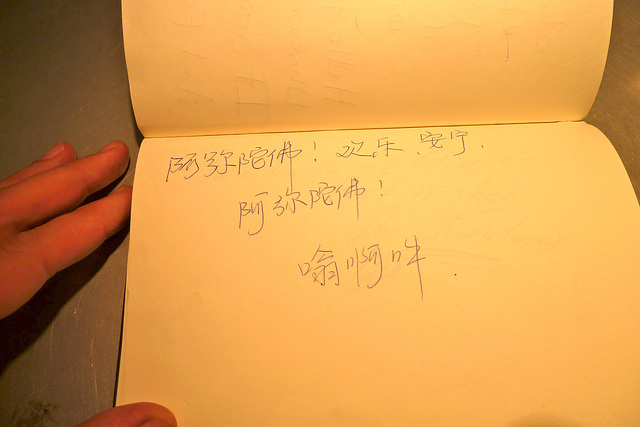 阿弥陀佛！欢乐、安宁，
阿弥陀佛！
嗡啊吽.